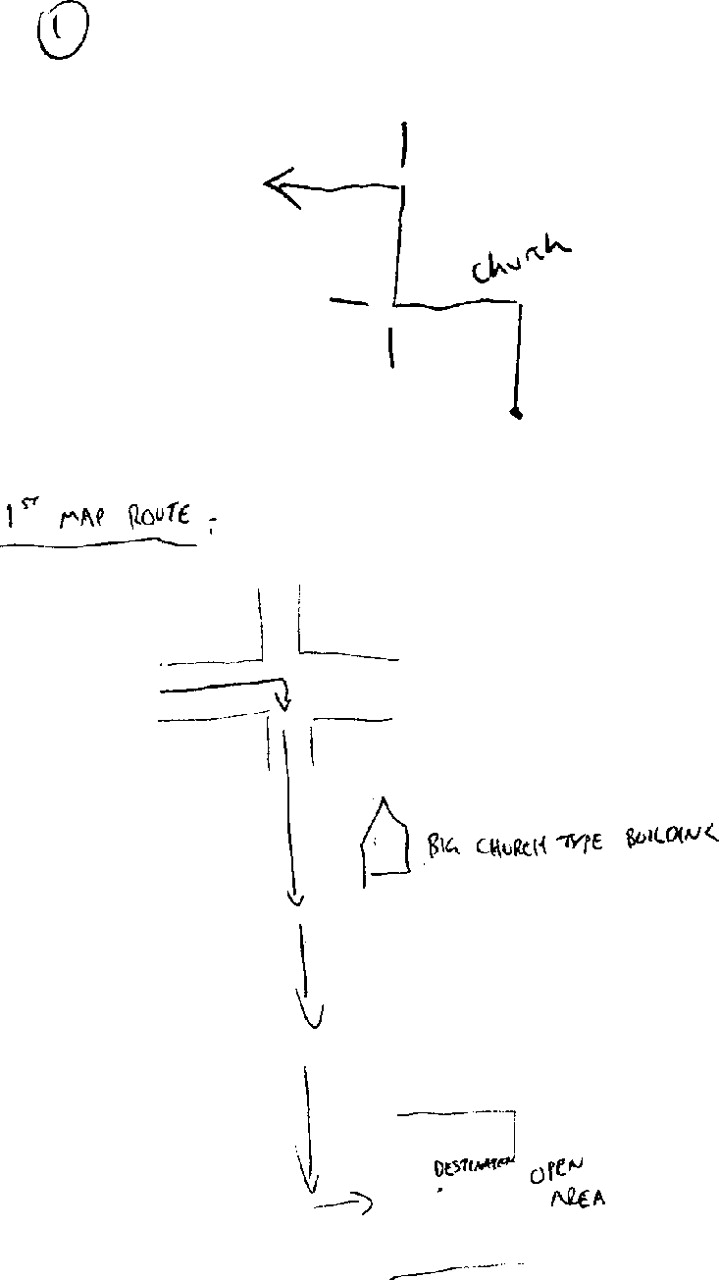 1
Church
1ST MAP ROUTE:
BIG CHURCH TYPE BUILDING
DESTINATION
OPEN
AREA